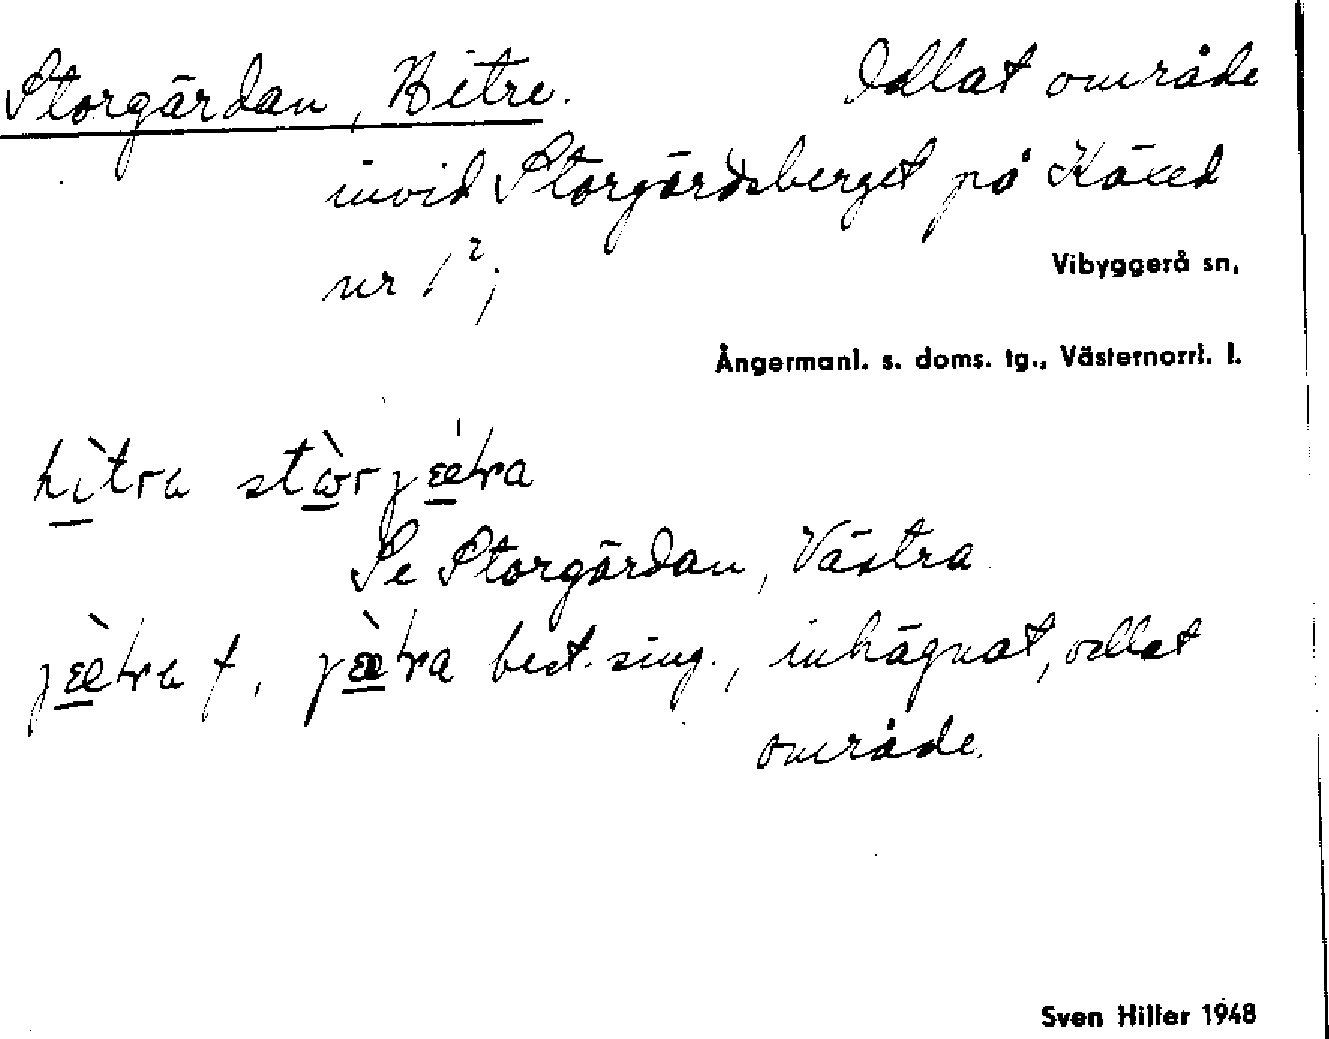 Storgärdan, Hitre. Odlat område
invid Storgärdsberget på Käxed
nr 1²;
Vibyggerå sn,
Ångermanl. s. doms. tg., Västernorrl. l.
hìtra
Se Storgärdan, Västra
f. best. sing., inhägnat, odlat
område.
Sven Hiller 1948